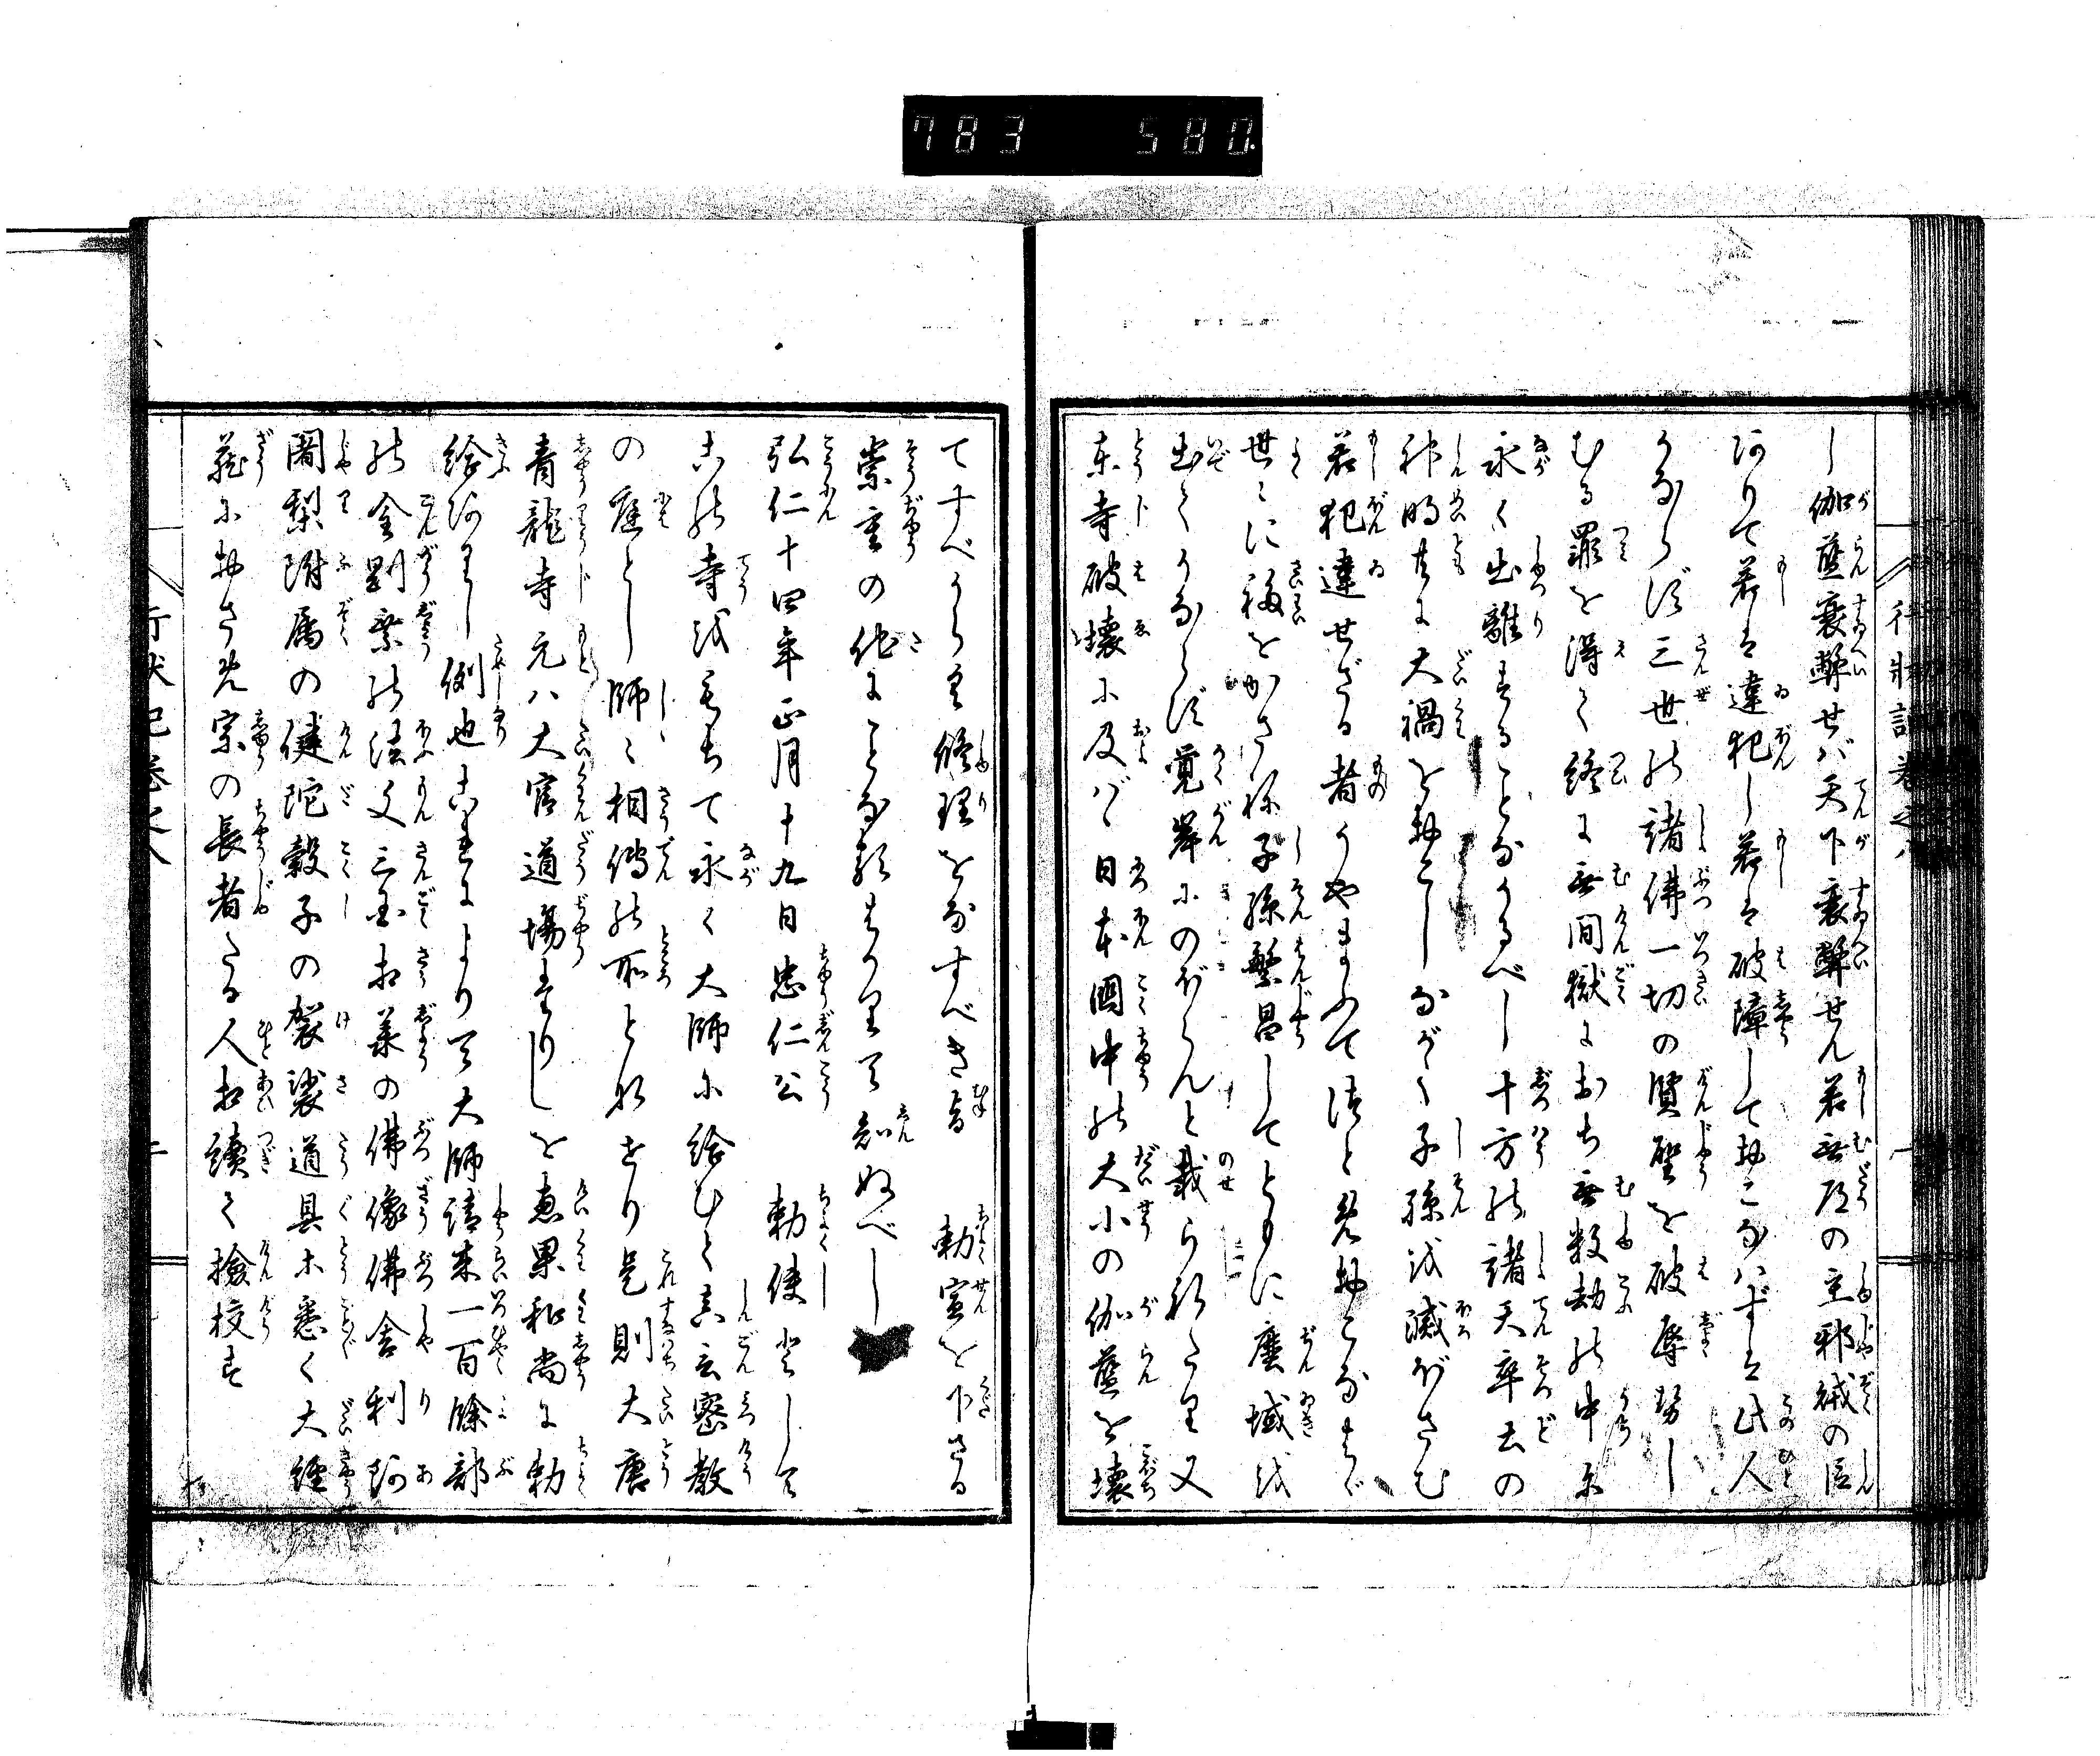 783 580
行状記卷之八
し伽藍衰弊せバ天下衰弊せん若無道の主邪織の臣
阿りて若は違犯し若は破障して執こなハずは此人
かならず三世の諸佛一切の賢聖を破辱努し
むる罪を得て終に無間獄におち無数劫の中に
永く出離することなかるべし十方の諸天率土の
神明共に大禍を執こしながく子孫を滅ぼさむ
若犯違せざる者うやまふて法と
世々に福をかさね子孫繁昌してともに塵域を
出てかならず覺岸にのぼらんと載られたり又
東寺破壊に及バ日本國中の大小の伽藍を壊
てすべからく修理をなすべき旨 勅宣を下さる
崇重の他にことなるはかりて知ぬべし
弘仁十四年正月十九日忠仁公 勅使として
この寺をもちて永く大師に給ひて真言密教
の庭とし師々相傳の所となせり是則大唐
青龍寺元ハ大官道場なりしを恵果和尚に勅
給ありし例也これによりて大師請来一百餘部
の金剛乗の法文三国相承の佛像佛舎利阿
闍梨附属の健陀穀子の袈裟道具木悉く大經
蔵に執さめ宗の長者たる人相續て撿挍す
行状記卷之八